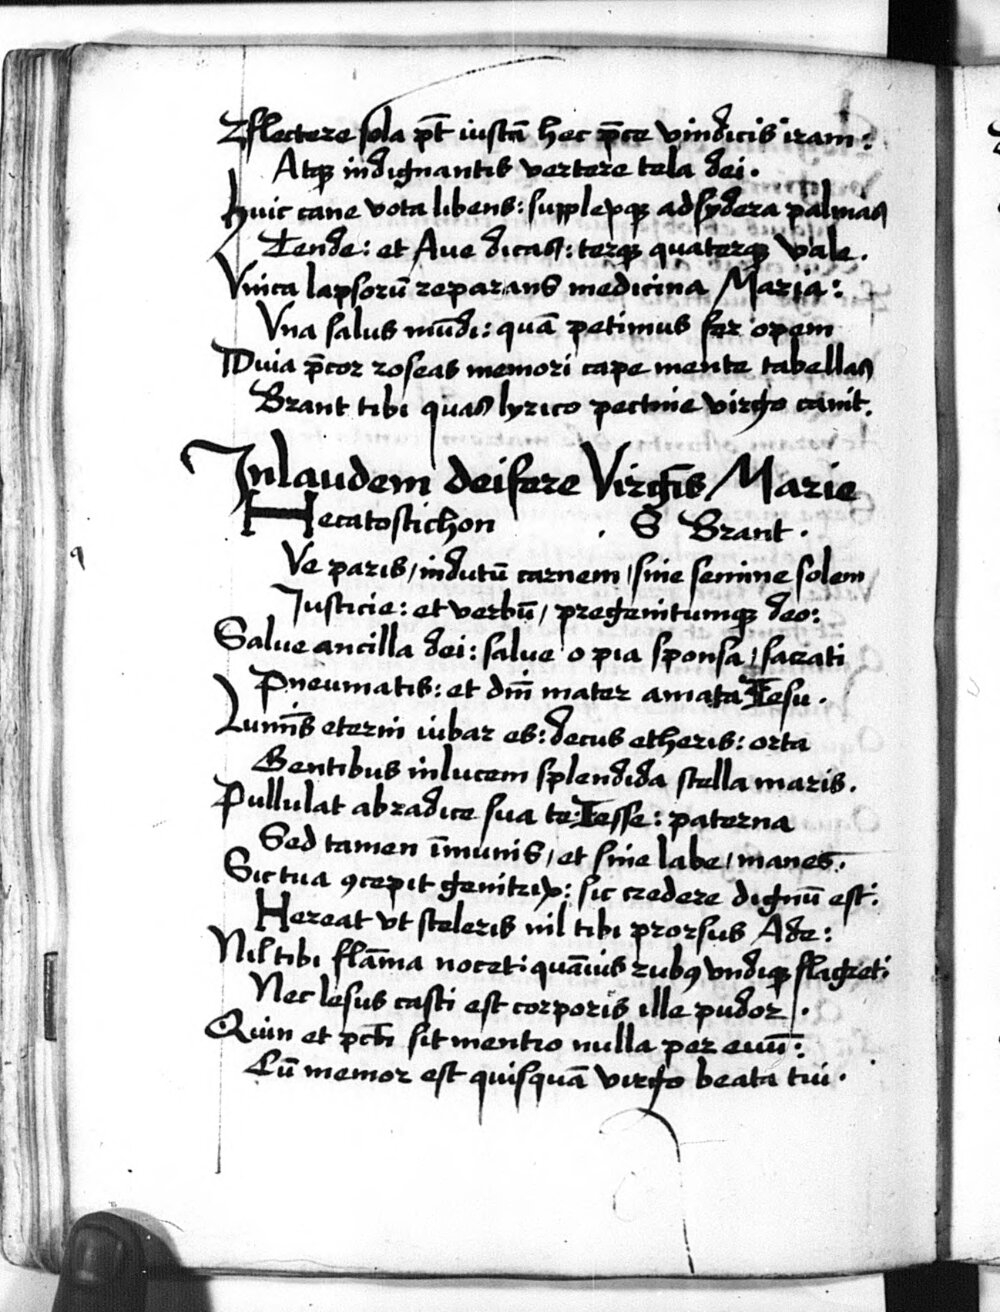 Flectere sola pt̄ iustā hec p̄ce vindicis iram:
Atqꝫ indignantis vertere tela dei.
Huic cane vota libens: supplexqꝫ ad sydera palmas
Tende: et Aue dicas: terqꝫ quaterqꝫ vale.
Vnica lapsorū reparans medicina Maria:
Vna salus mūdi: quā petimus fer opem
Quia p̄cor roseas memori cape mente tabellas
Brant tibi quas lyrico pectine virgo canit.
In laudem deifere Virgīs Marie
Hecatostichon . S Brant .
Ve paris / indutū carnem / sine semine solem
Iusticie: et verbū / pregenitumqꝫ deo:
Salue ancilla dei: salue o pia sponsa / sacrati
Pneumatis: et dn̄i mater amata Iesu .
Lumīs eterni iubar es: decus etheris: orta
Gentibus in lucem splendida stella maris.
Pullulat ab radice sua te Iesse: paterna
Sed tamen īmunis / et sine labe / manes.
Sic tua ꝯcepit genitrix: sic credere dignū est:
Hereat vt sceleris nil tibi prorsus Ade:
Nil tibi flāma nocet: quāuis rubꝰ vndiqꝫ flagret:
Nec lesus casti est corporis ille pudor .
Quin et pct̄i sit mentio nulla per euū:
Cū memor est quisquā virgo beata tui .